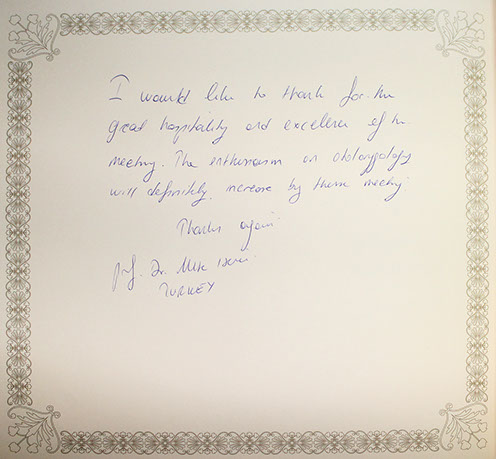 I would like to thank for the
great hospitality and excellence of the
meeting. The enthusiasm on otolaryngology
will definitely increase by these meeting
Thanks again
Prof. Dr.
TURKEY